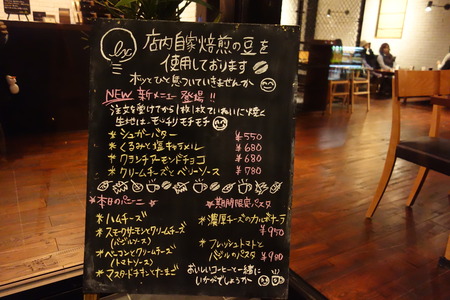 店内自家焙煎の豆を
使用しております
ホッとひと息ついていきませんか
NEW 新メニュー登場!!
注文を受けてから1枚1枚ていねいに焼く
生地は、モッチリモチモチ
*シュガーバター ¥550
*くるみと塩キャラメル ¥680
*クランチアーモンドチョコ ¥680
*クリームチーズとベリーソース ¥780
*本日のパニーニ*
*ハムチーズ
*スモークサーモンとクリームチーズ
(バジルソース)
*ベーコンとクリームチーズ
(トマトソース)
*マスタードチキンとたまご
*期間限定パスタ
*濃厚チーズのカルボナーラ
¥950
*フレッシュトマトと
バジルのパスタ ¥980
おいしいコーヒーと一緒に
いかがでしょうか